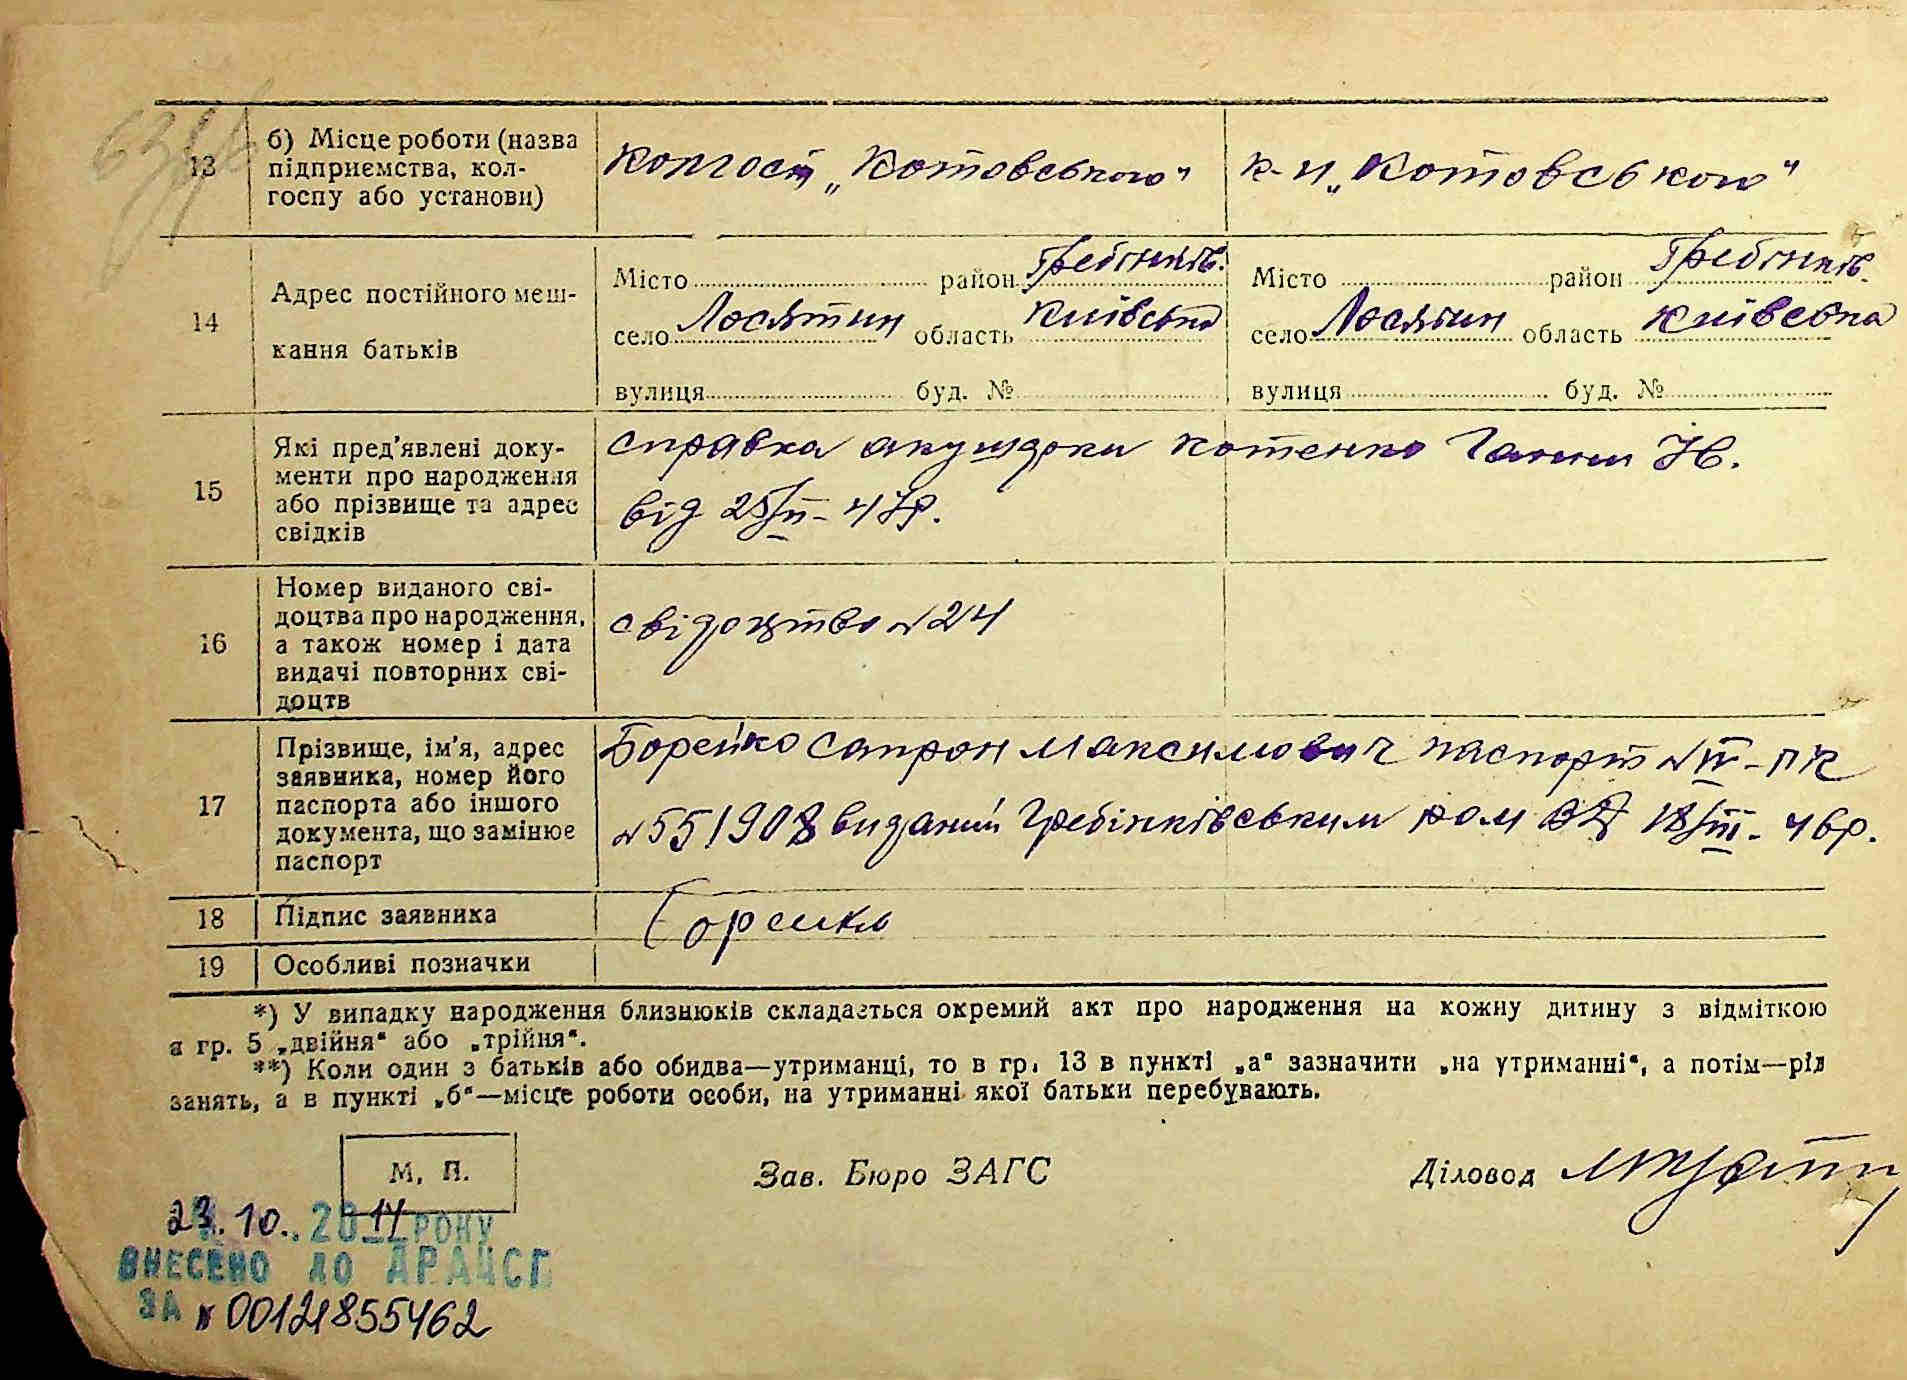 13 б) Місце роботи (назва підприємства, колгоспу або установи) колгосп „Котовського" к-п „Котовського"
14 Адрес постійного мешкання батьків
Місто район Гребінків. Місто район Гребінків.
село Лосятин область Київська село Лосятин область Київська
вулиця буд. № вулиця буд. №
15 Які пред'явлені документи про народження або прізвище та адрес свідків
справка акушерки Котенко Ганни Н.
від 25/II-47р.
16 Номер виданого свідоцтва про народження, а також номер і дата видачі повторних свідоцтв
свідоцтво №24
17 Прізвище, ім'я, адрес заявника, номер його паспорта або іншого документа, що замінює паспорт
Борейко Сапрон Максимович паспорт № IV-ПК
№551908 виданий Гребінківським 18/III-46р.
18 Підпис заявника Борейко
19 Особливі позначки
*) У випадку народження близнюків складається окремий акт про народження на кожну дитину з відміткою
в гр. 5 „двійня" або „трійня".
**) Коли один з батьків або обидва—утриманці, то в гр. 13 в пункті „а" зазначити „на утриманні", а потім—рід
занять, а в пункті „б"—місце роботи особи, на утриманні якої батьки перебувають.
М. П.
Зав. Бюро ЗАГС
Діловод
23.10.2014 РОКУ
ВНЕСЕНО ДО ДРАЦСГ
ЗА № 00121855462